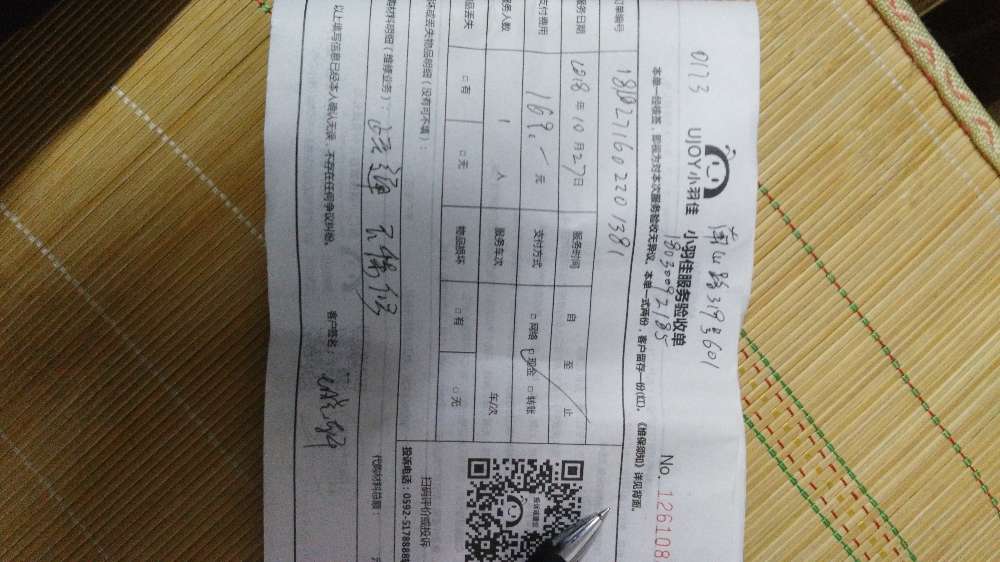 0123
UJOY小羽佳 小羽佳服务验收单
山路319号601
18030092185
No. 126108
本单一经接签，即视为对本次服务验收无异议，本单一式两份，客户留存一份(红)。《维保须知》详见背面。
订单编号 1810271602201381
服务日期 2018年10月27日 服务时间 自 至 止
支付费用 169.- 元 支付方式 □网络 □现金 □转账
服务人数 1 人 服务车次 车/次
物品丢失 □有 □无 物品损坏 □有 □无
坏或丢失物品明细（没有可不填）：
购材料明细（维修业务）： 不保修
代购材料总额：
以上填写信息已经本人确认无误，不存在任何争议纠纷。 客户签名：
投诉或建议
扫码评价或投诉
投诉电话：0592-5178888